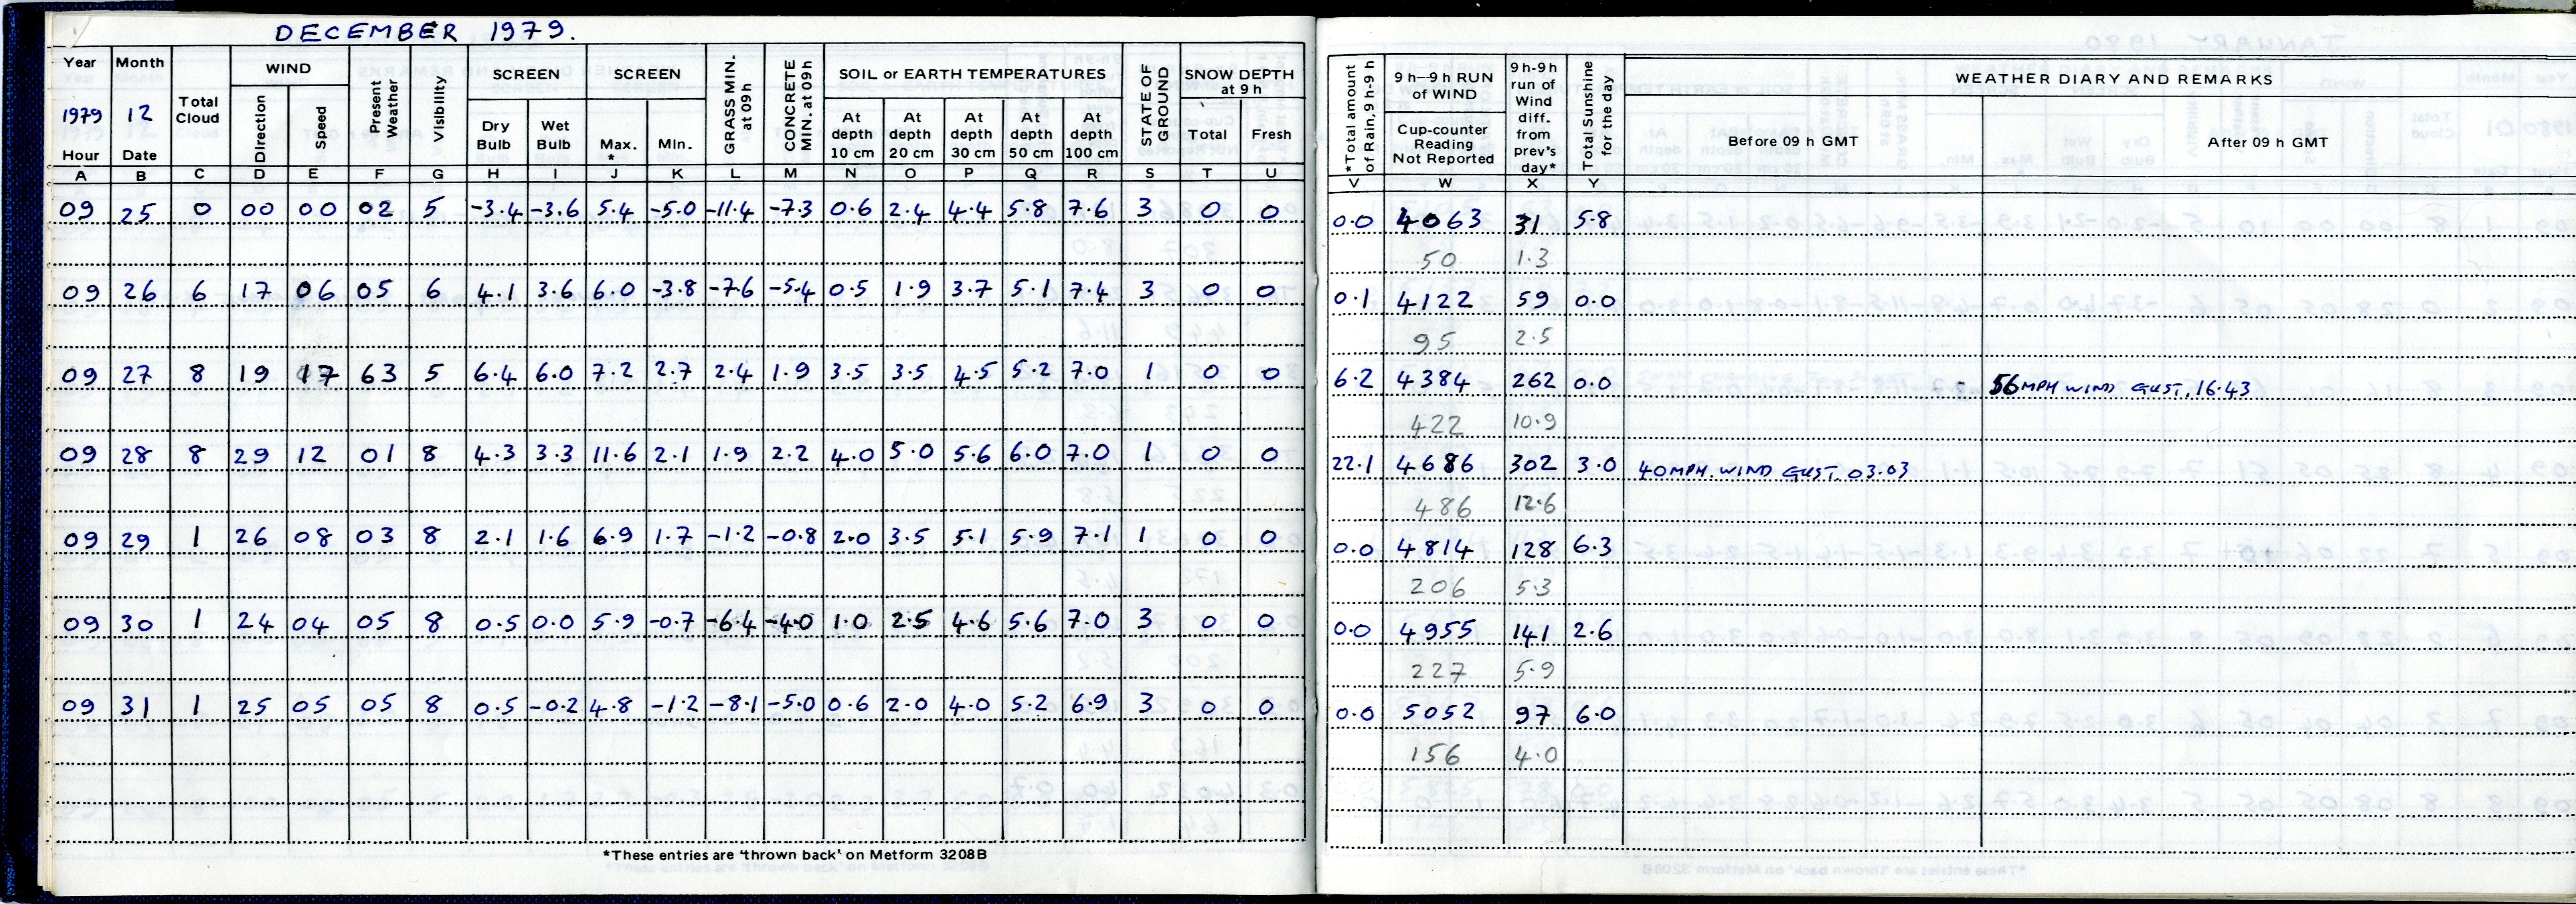 DECEMBER 1979.
Year Month Total Cloud WIND Present Weather Visibility SCREEN SCREEN GRASS MIN. at 09h CONCRETE MIN. at 09h SOIL or EARTH TEMPERATURES STATE OF GROUND SNOW DEPTH at 9 h
1979 12 Direction Speed Dry Bulb Wet Bulb Max. * Min. At depth 10 cm At depth 20 cm At depth 30 cm At depth 50 cm At depth 100 cm Total Fresh
Hour Date
A B C D E F G H I J K L M N O P Q R S T U
09 25 0 00 00 02 5 -3.4 -3.6 5.4 -5.0 -11.4 -7.3 0.6 2.4 4.4 5.8 7.6 3 0 0
09 26 6 17 06 05 6 4.1 3.6 6.0 -3.8 -7.6 -5.4 0.5 1.9 3.7 5.1 7.4 3 0 0
09 27 8 19 17 63 5 6.4 6.0 7.2 2.7 2.4 1.9 3.5 3.5 4.5 5.2 7.0 1 0 0
09 28 8 29 12 01 8 4.3 3.3 11.6 2.1 1.9 2.2 4.0 5.0 5.6 6.0 7.0 1 0 0
09 29 1 26 08 03 8 2.1 1.6 6.9 1.7 -1.2 -0.8 2.0 3.5 5.1 5.9 7.1 1 0 0
09 30 1 24 04 05 8 0.5 0.0 5.9 -0.7 -6.4 -4.0 1.0 2.5 4.6 5.6 7.0 3 0 0
09 31 1 25 05 05 8 0.5 -0.2 4.8 -1.2 -8.1 -5.0 0.6 2.0 4.0 5.2 6.9 3 0 0
*These entries are 'thrown back' on Metform 3208B
*Total amount of Rain, 9 h-9 h 9 h—9 h RUN of WIND Cup-counter Reading Not Reported 9 h-9 h run of Wind diff. from prev's day* Total Sunshine for the day WEATHER DIARY AND REMARKS
Before 09 h GMT After 09 h GMT
V W X Y
0.0 4063 31 5.8
50 1.3
0.1 4122 59 0.0
95 2.5
6.2 4384 262 0.0 56 MPH WIND GUST, 16.43
422 10.9
22.1 4686 302 3.0 40 MPH. WIND GUST, 03.03
486 12.6
0.0 4814 128 6.3
206 5.3
0.0 4955 141 2.6
227 5.9
0.0 5052 97 6.0
156 4.0